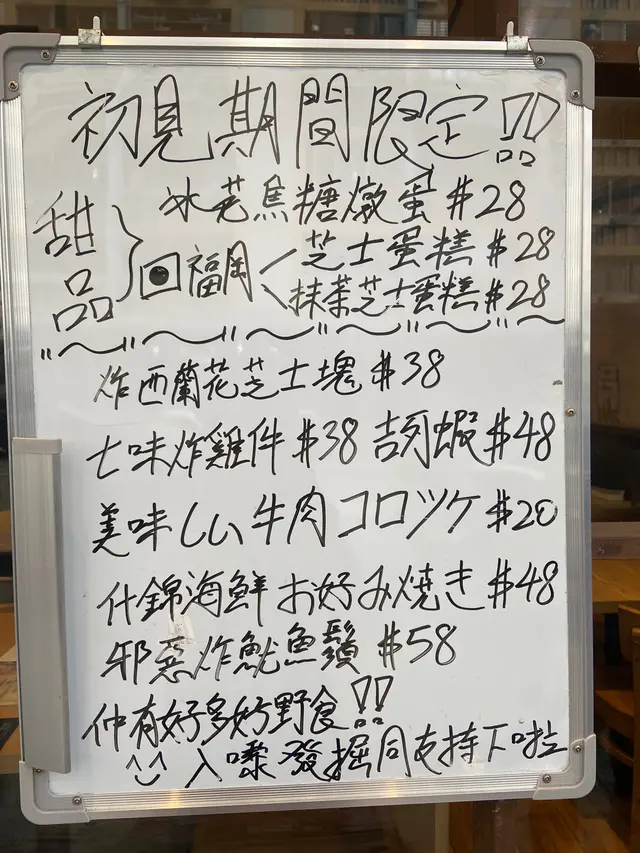 初見期間限定!!
甜品
冰花焦糖燉蛋 $28
福岡
芝士蛋糕 $28
抹茶芝士蛋糕 $28
炸西蘭花芝士塊 $38
七味炸雞件 $38 吉列蝦 $48
美味しい牛肉コロッケ $20
什錦海鮮お好み焼き $48
邪惡炸魷魚鬚 $58
仲有好多好野食!!
入嚟發掘同支持下啦